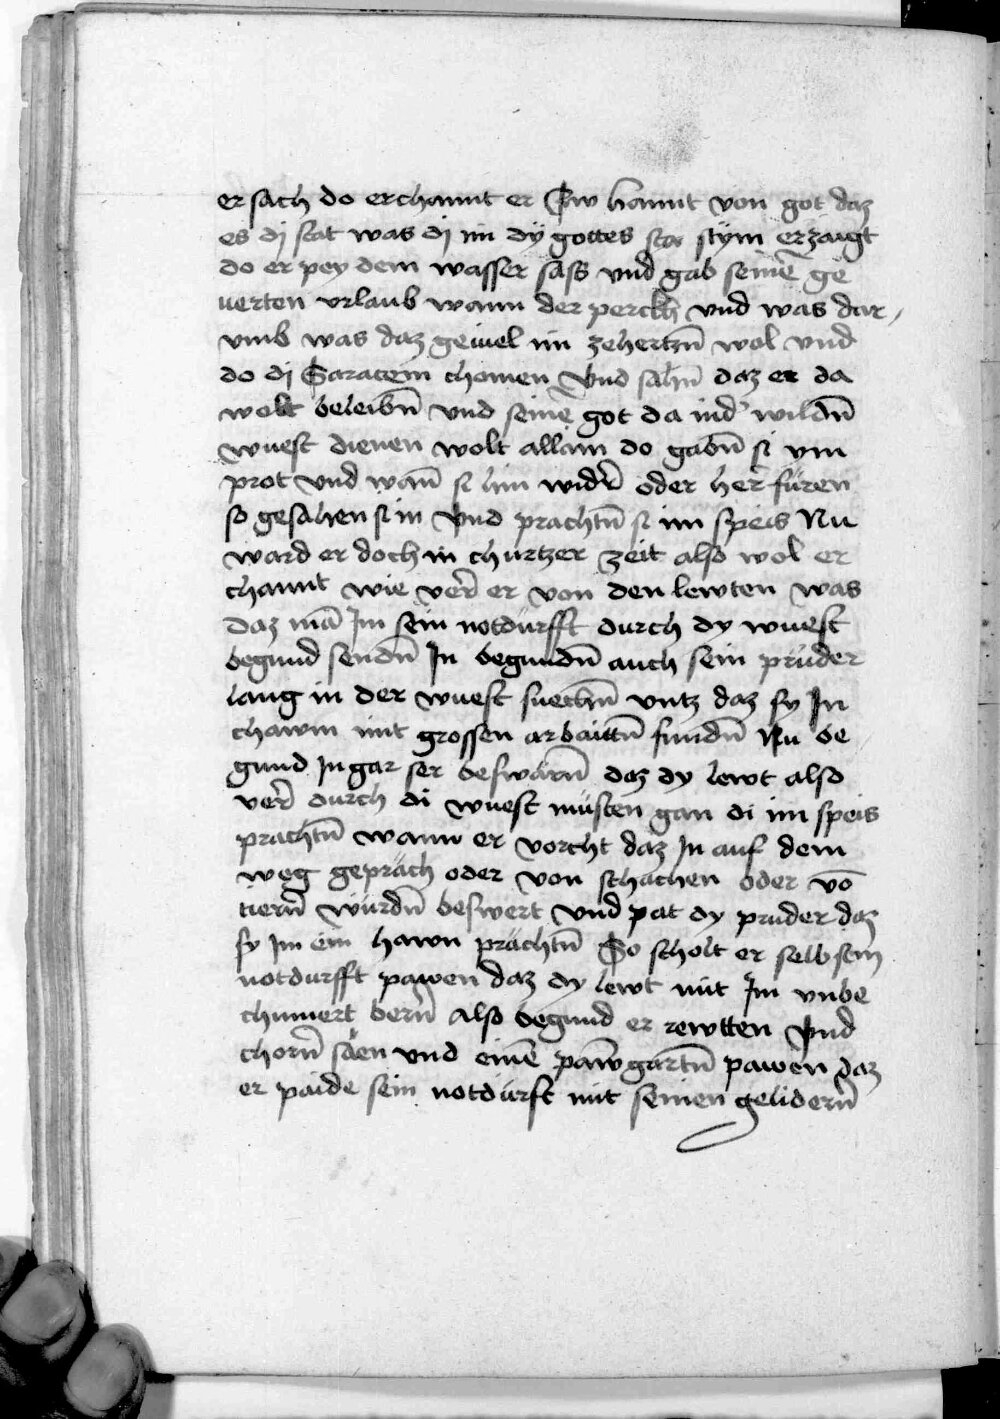 er sach do erchannt er Czw hannt von got daz
es dj stat was dj im dÿ gottes sta stÿm erzaigt
do er pey dem wasser sass vnd gab seinē ge
uerten vrlaub wann der perckh vnd was dar,
vmb was daz geuiel im zehertzn̄ wol vnd
do dj Saracem chomen Vnd sahn̄ daz er da
wolt beleibn̄ vnd seinē got da ind' wildn̄
wuest dienen wolt allain do gabn̄ si ym
prot vnd wan̄ si hin wider̄ oder her füren
so gesahen si in Vnd prachtn̄ si im speis Nu
ward er doch in churtzer zeit also wol er
channt wie ver̄ er von den lewten was
daz mā Jm sein notdürfft durch dy wuest
begund sendn̄ Jn begundn̄ auch sein prüder
lang in der wuest suechn̄ vntz daz sy Jn
chawm mit grossen arbaittn̄ fundn̄ Nu be
gund Jn gar ser beswärn̄ daz dy lewt also
ver̄ durch di wuest müsten gan di im speis
prachtn̄ wann er vorcht daz Jn auf dem
weg gepräch oder von schachen oder vō
tiern̄ würdn̄ beswert vnd pat dy prüder daz
sy Jm ein hawn prächtn̄ So scholt er selb sein
notdurfft pawen daz dy lewt mit Jm vnbe
chumert bern̄ Also begund er rewtten Vnd
chorn̄ säen vnd einē pawmgartn̄ pawen daz
er paide sein notdürft mit seinen gelidern̄